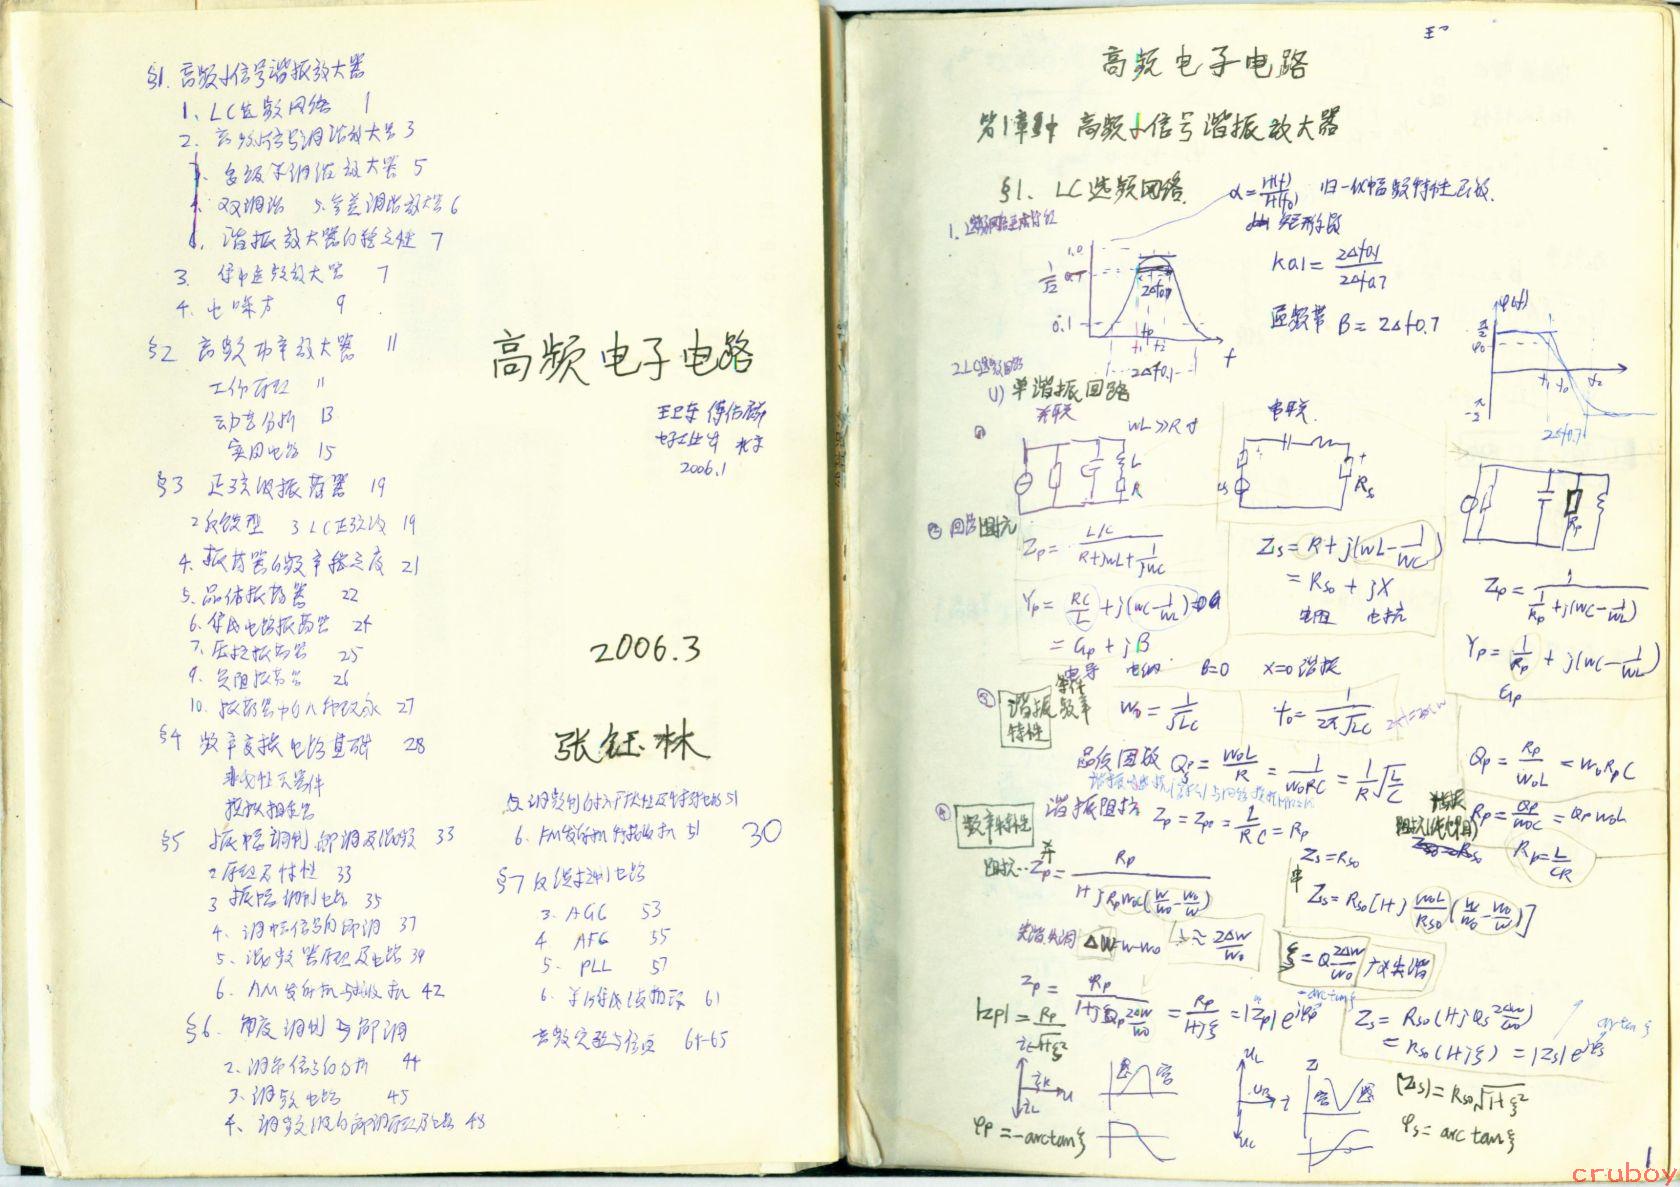 §1. 高频小信号谐振放大器
1、LC选频网络 1
2. 高频小信号调谐放大器 3
3. 多级单调谐放大器 5
4. 双调谐 5.参差调谐放大器 6
6. 谐振放大器的稳定性 7
3. 集中选频放大器 7
4. 电噪声 9
§2 高频功率放大器 11
工作原理 11
动态分析 13
实用电路 15
§3 正弦波振荡器 19
2反馈型 3 LC正弦波 19
4. 振荡器的频率稳定度 21
5. 晶体振荡器 22
6. 集成电路振荡器 24
7. 压控振荡器 25
9. 负阻振荡器 26
10. 振荡器中的几种现象 27
§4 频率变换电路基础 28
非线性元器件
模拟相乘器
§5 振幅调制、解调及混频 33
2原理及特性 33
3 振幅调制电路 35
4. 调幅信号的解调 37
5. 混频器原理及电路 39
6. AM发射机与接收机 42
§6. 角度调制与解调
2. 调角信号的分析 44
3. 调频电路 45
4. 调频波的解调原理及电路 48
高频电子电路
王卫东 傅佑麟
电子工业 北京
2006.1
2006.3
张钰林
51
6. FM发射机 接收机 51
30
§7 反馈控制电路
3. AGC 53
4 AFC 55
5. PLL 57
6. 单片集成锁相环 61
高频实验与仿真 64-65
高频电子电路
第1章 高频小信号谐振放大器
§1. LC选频网络.
α=H(f)/H(f0) 归一化幅频特性函数.
1.
矩形系数
K0.1= 2Δf0.1/2Δf0.7
通频带 B=2Δf0.7
1.0
1/√2 0.7
0.1
2Δf0.7
f1 f0 f2
2Δf0.1
f
φ(f)
π/2
φ0
-π/2
f1 f0 f2
2Δf0.7
2.LC选频回路
(1) 单谐振回路
并联 wL≫R时 串联.
L
R
Rs
Rp
② 回路阻抗
Zp= (L/C)/(R+jwL+1/jwC)
Zs=R+j(wL-1/wC)
Yp= RC/L+j(wC-1/wL)
=Rso+jX
电阻 电抗
=Gp+jB
电导 电纳 B=0 X=0谐振
Zp= 1/(1/Rp+j(wC-1/wL))
Yp= 1/Rp+j(wC-1/wL)
Gp
③ 谐振特性
条件
频率
w0=1/√LC
f0=1/(2π√LC)
品质因数 Qp=w0L/R=1/(w0RC)=1/R √(L/C)
Qp=Rp/(w0L)=w0RpC
④ 频率特性
谐振阻抗 Zp=Zpr=L/RC=Rp
Rp=Qp/(w0C)=Qpw0L
Rp=L/CR
阻抗 Zp=Rp/(1+jRpw0C(w/w0-w0/w))
并
串
Zs=Rso
Zs=Rso[1+j w0L/Rso (w/w0-w0/w)]
失谐 Δw=w-w0 ≈2Δw/w0
ξ=Q 2Δw/w0 广义失谐
Zp=Rp/(1+jQp 2Δw/w0)=Rp/(1+jξ)=|Zp|e^jφp
-arctanξ
|Zp|=Rp/√(1+ξ²)
Zs=Rso(1+jQs 2Δw/w0)
=Rso(1+jξ)=|Zs|e^jφs
arctan ξ
|Zs|=Rso√(1+ξ²)
φp=-arctanξ
φs=arctanξ
1
cruboy